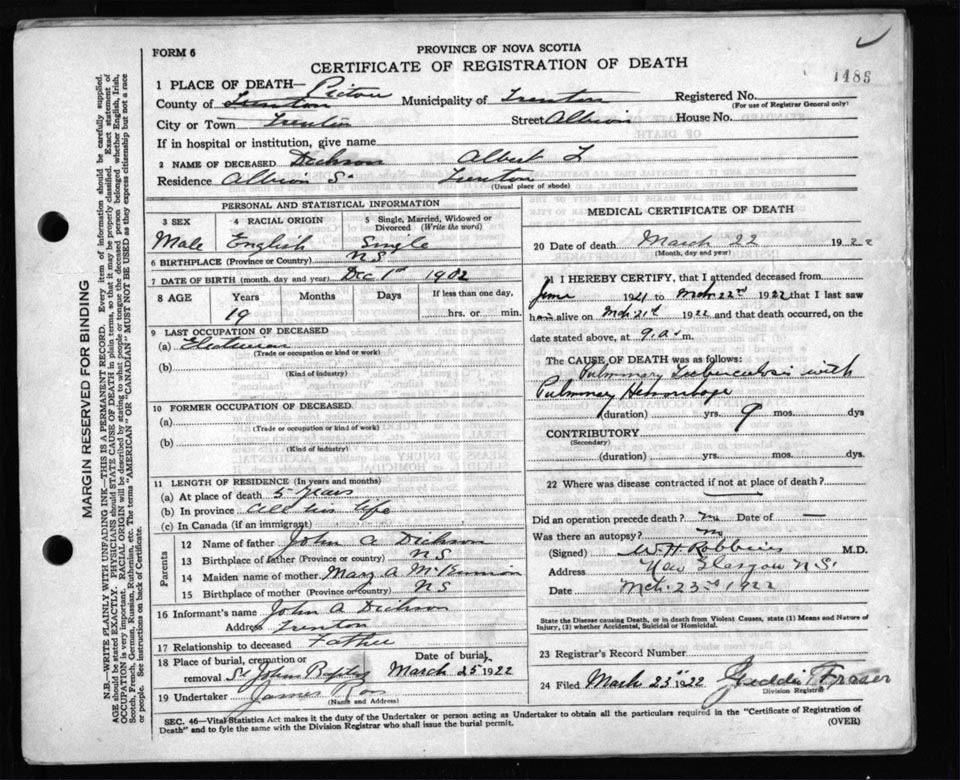 FORM 6
PROVINCE OF NOVA SCOTIA
CERTIFICATE OF REGISTRATION OF DEATH
1488
1 PLACE OF DEATH— Pictou
County of Trenton Municipality of Trenton Registered No.
(For use of Registrar General only)
City or Town Trenton Street Albion House No.
If in hospital or institution, give name
2 NAME OF DECEASED Dickson Albert L
Residence Albion S. Trenton
(Usual place of abode)
PERSONAL AND STATISTICAL INFORMATION
3 SEX 4 RACIAL ORIGIN 5 Single, Married, Widowed or Divorced (Write the word)
Male English Single
6 BIRTHPLACE (Province or Country) N.S.
7 DATE OF BIRTH (month, day and year) Dec 1st 1902
8 AGE Years Months Days If less than one day,
19 hrs. or min.
9 LAST OCCUPATION OF DECEASED
(a)
(Trade or occupation or kind or work)
(b)
(Kind of industry)
10 FORMER OCCUPATION OF DECEASED
(a)
(Trade or occupation or kind of work)
(b)
(Kind of industry)
11 LENGTH OF RESIDENCE (In years and months)
(a) At place of death 5 years
(b) In province All his life
(c) In Canada (if an immigrant)
Parents
12 Name of father John A Dickson
13 Birthplace of father (Province or country) N S
14 Maiden name of mother Mary A
15 Birthplace of mother (Province or country) N S
16 Informant's name John A Dickson
Address Trenton
17 Relationship to deceased Father
18 Place of burial, cremation or removal St John Baptist Date of burial, March 25th 1922
19 Undertaker James
(Name and Address)
MEDICAL CERTIFICATE OF DEATH
20 Date of death March 22 1922
(Month, day and year)
21 I HEREBY CERTIFY, that I attended deceased from
June 1921 to Mch 22nd 1922 that I last saw
him alive on Mch 21st 1922 and that death occurred, on the
date stated above, at 9 a. m.
The CAUSE OF DEATH was as follows:
Pulmonary Tuberculosis with
Pulmonary
(duration) yrs. 9 mos. dys
CONTRIBUTORY
(Secondary)
(duration) yrs. mos. dys.
22 Where was disease contracted if not at place of death?
Did an operation precede death? no Date of —
Was there an autopsy? no
(Signed) W. H. Robbins M.D.
Address New Glasgow N.S.
Date Mch. 23rd 1922
State the Disease causing Death, or in death from Violent Causes, state (1) Means and Nature of Injury, (2) whether Accidental, Suicidal or Homicidal.
23 Registrar's Record Number
24 Filed March 23rd 1922 Geddie T. Fraser
Division Registrar
SEC. 46—Vital Statistics Act makes it the duty of the Undertaker or person acting as Undertaker to obtain all the particulars required in the "Certificate of Registration of
Death" and to fyle the same with the Division Registrar who shall issue the burial permit. (OVER)
MARGIN RESERVED FOR BINDING
N.B.—WRITE PLAINLY WITH UNFADING INK—THIS IS A PERMANENT RECORD. Every item of information should be carefully supplied.
AGE should be stated EXACTLY. PHYSICIANS should STATE CAUSE OF DEATH in plain terms, so that it may be properly classified. Exact statement of
OCCUPATION is very important. RACIAL ORIGIN will be described by stating to what people or tongue the deceased person belonged whether English, Irish,
Scotch, French, German, Russian, Ruthenian, etc. The terms "AMERICAN" OR "CANADIAN" MUST NOT BE USED as they express citizenship but not a race
or people. See instructions on back of Certificate.